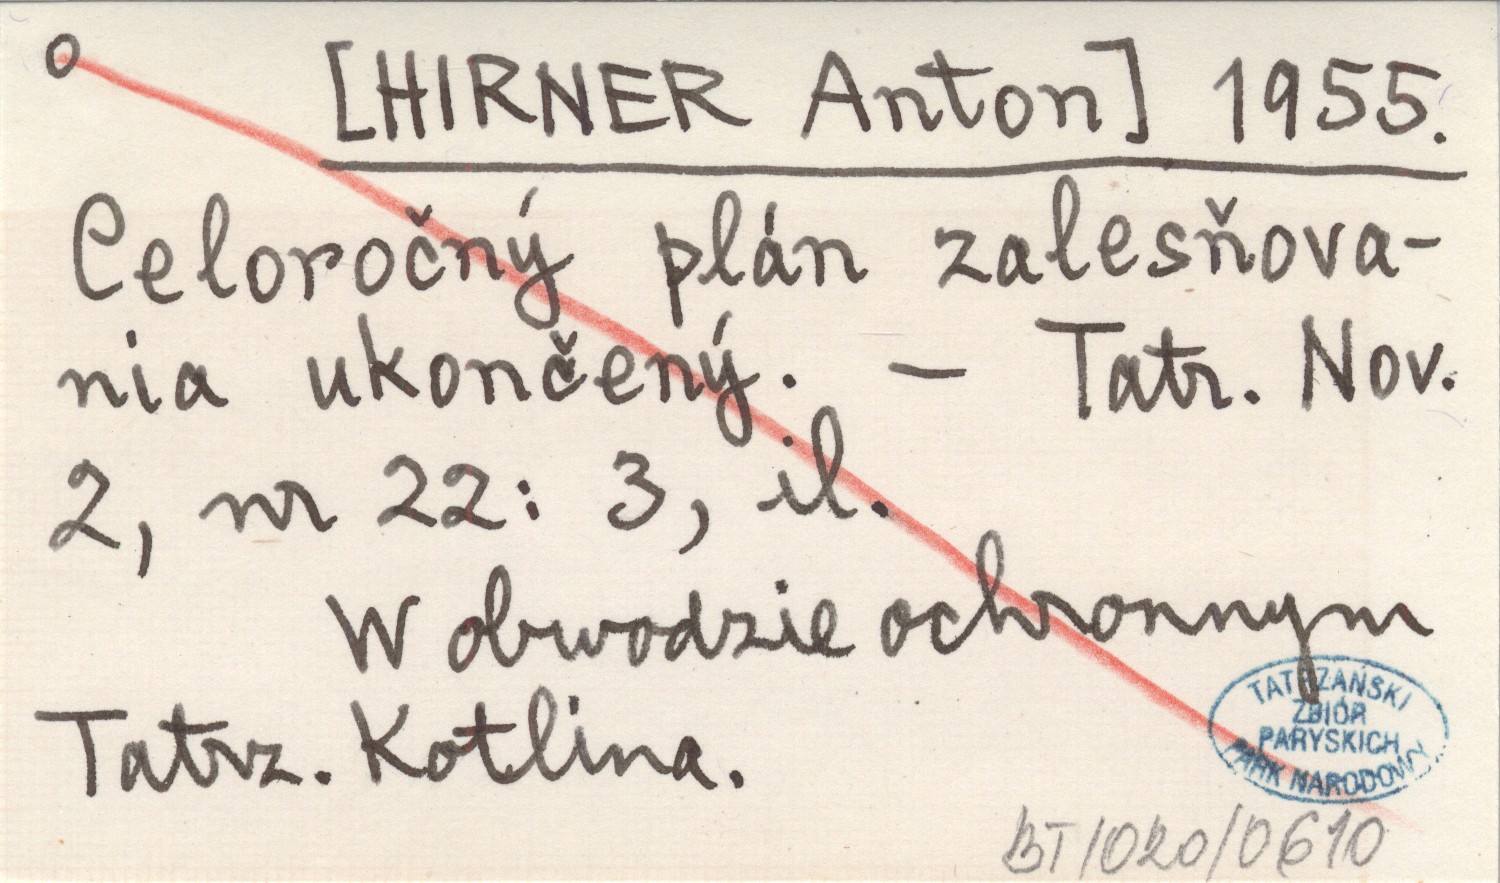 [HIRNER Anton] 1955.
Celoročný plán zalesňova-
nia ukončený. — Tatr. Nov.
2, nr 22: 3, il.
W obwodzie ochronnym
Tatrz. Kotlina.
TATRZAŃSKI
ZBIÓR
PARYSKICH
PARK NARODOWY
BT/020/0610